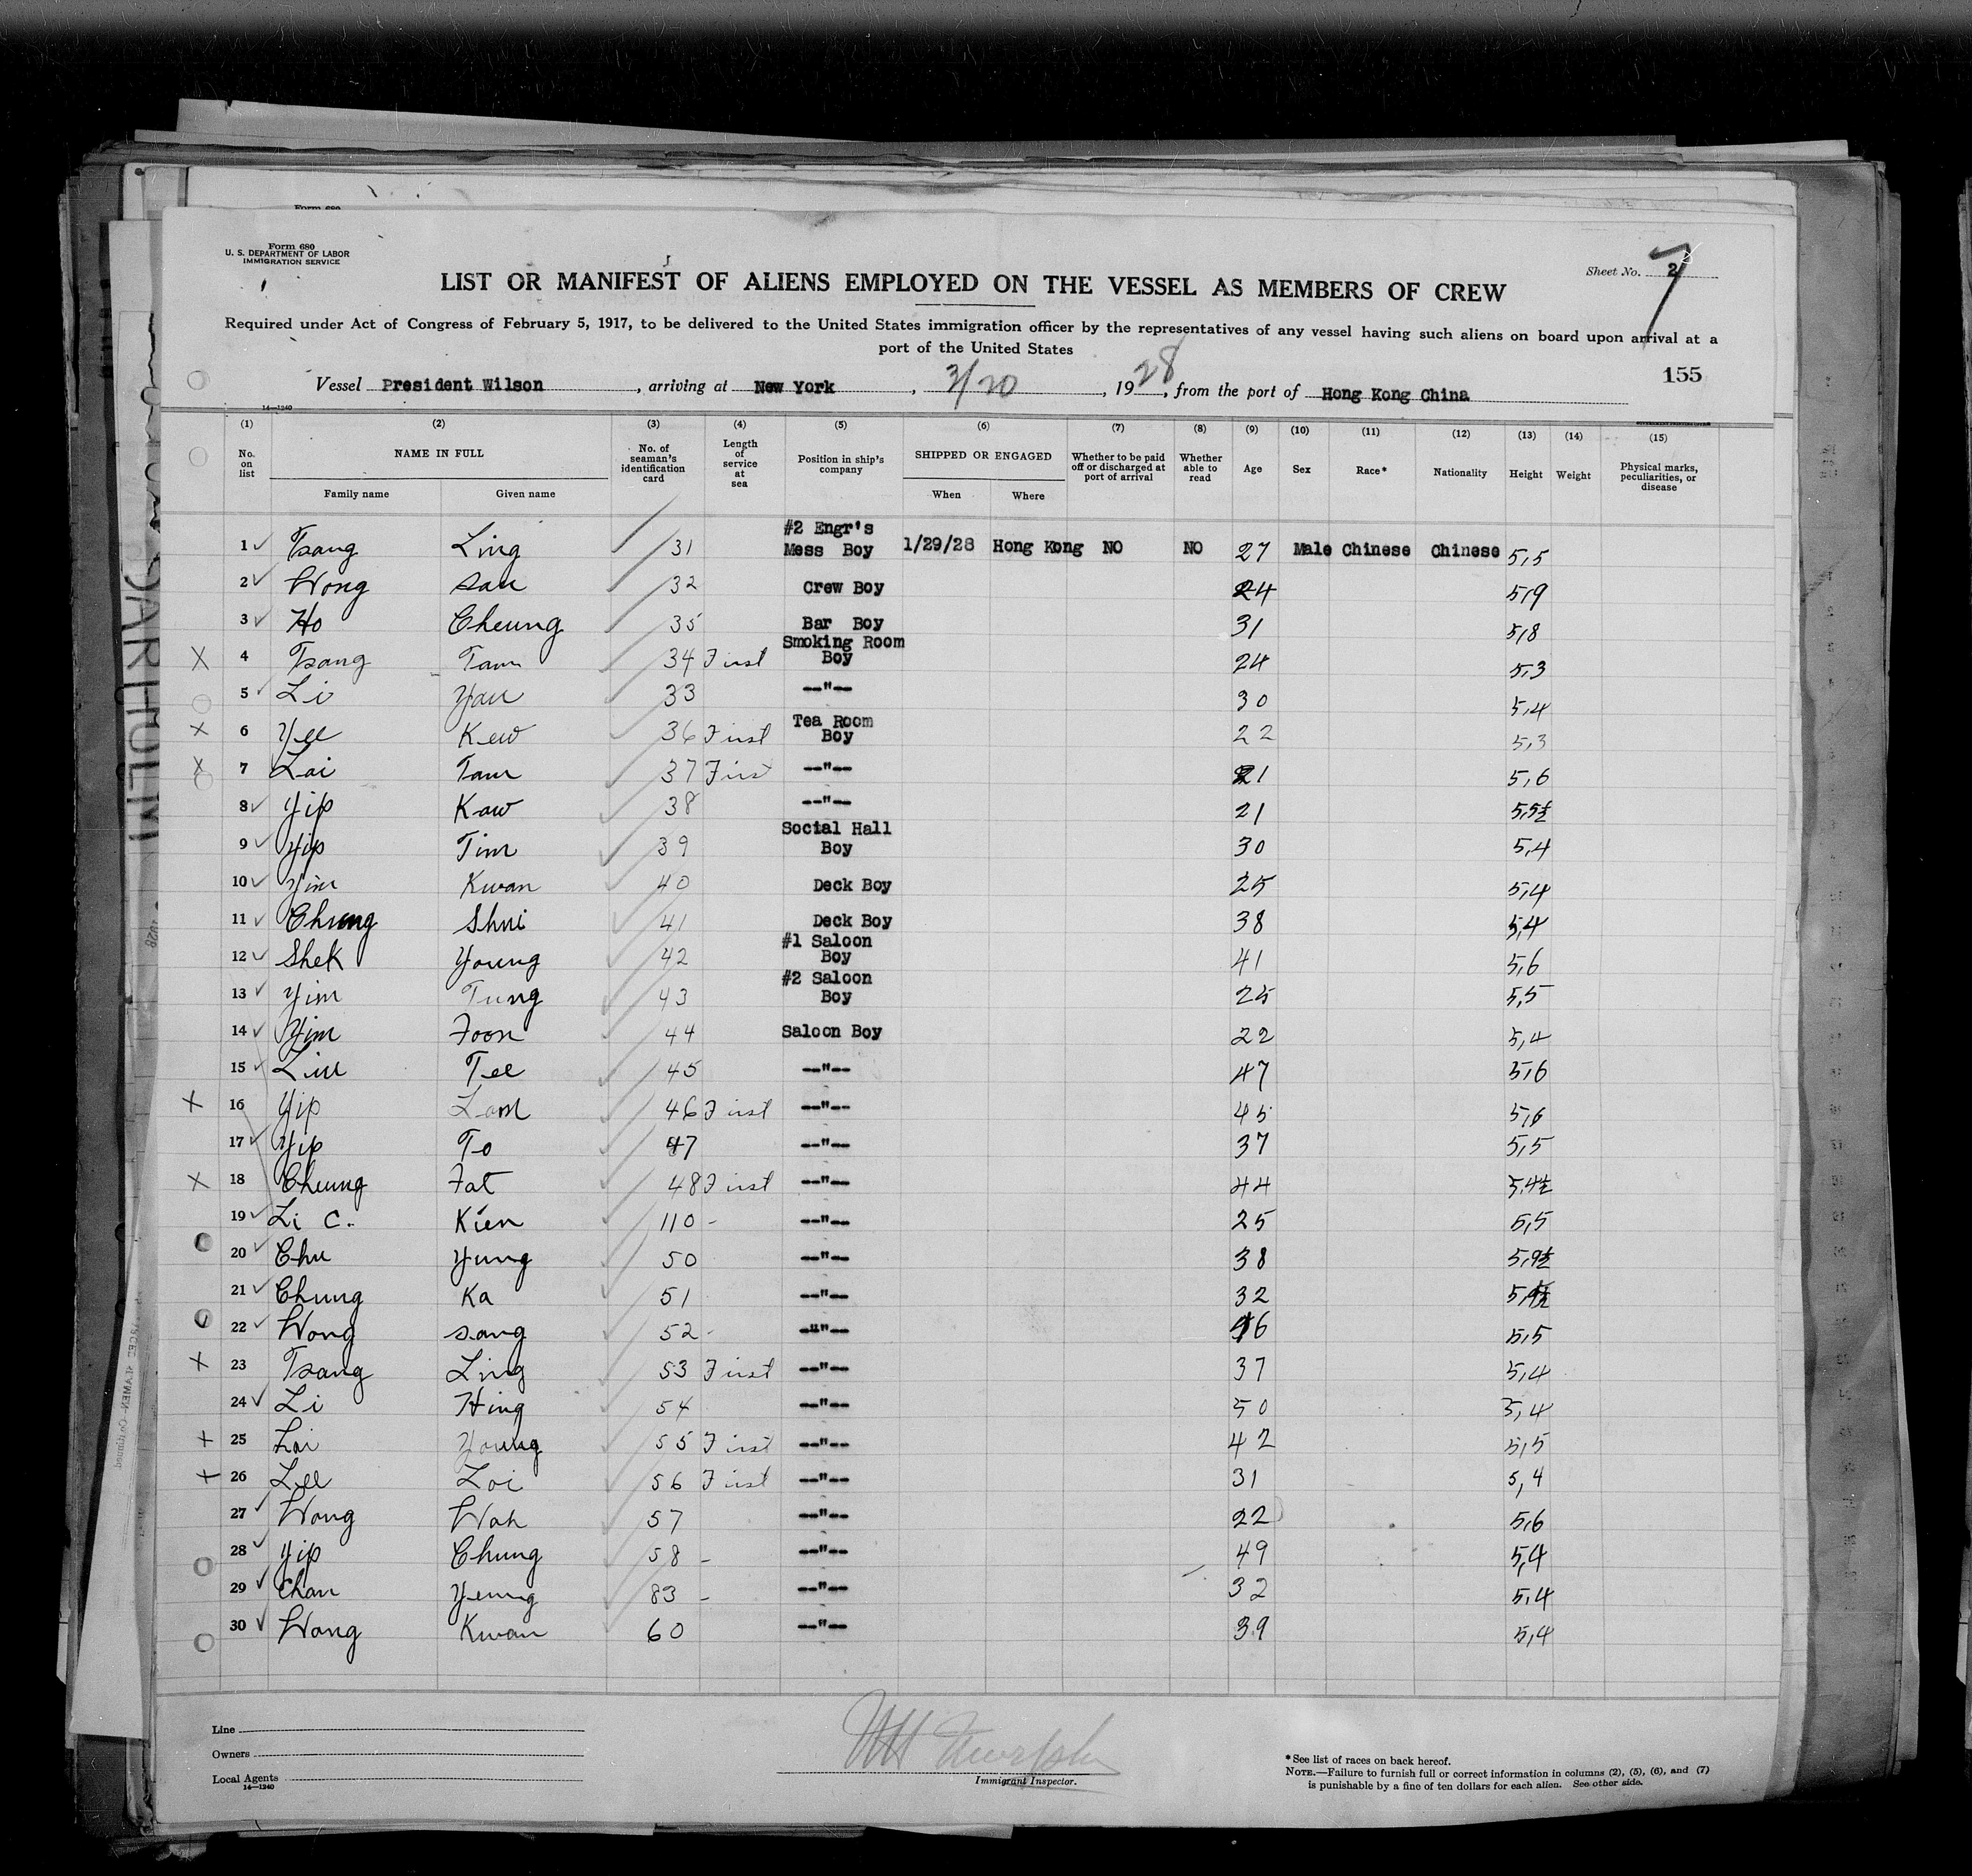 Form 680
U. S. DEPARTMENT OF LABOR
IMMIGRATION SERVICE
Sheet No. 2
7
LIST OR MANIFEST OF ALIENS EMPLOYED ON THE VESSEL AS MEMBERS OF CREW
Required under Act of Congress of February 5, 1917, to be delivered to the United States immigration officer by the representatives of any vessel having such aliens on board upon arrival at a
port of the United States
155
Vessel President Wilson, arriving at New York, 3/20, 1928, from the port of Hong Kong China
14—1240
(1) (2) (3) (4) (5) (6) (7) (8) (9) (10) (11) (12) (13) (14) (15)
No. on list NAME IN FULL Family name Given name No. of seaman's identification card Length of service at sea Position in ship's company SHIPPED OR ENGAGED When Where Whether to be paid off or discharged at port of arrival Whether able to read Age Sex Race* Nationality Height Weight Physical marks, peculiarities, or disease
1 Tsang Ling 31 #2 Engr's Mess Boy 1/29/28 Hong Kong NO NO 27 Male Chinese Chinese 5,5
2 Wong Sau 32 Crew Boy 24 5,9
3 Ho Cheung 35 Bar Boy 31 5,8
X 4 Tsang Tam 34 First Smoking Room Boy 24 5,3
5 Li Yau 33 --"-- 30 5,4
X 6 Yee Kew 36 First Tea Room Boy 22 5,3
X 7 Lai Tam 37 First --"-- 21 5,6
8 Yip Kaw 38 --"-- 21 5,5½
9 Yip Tim 39 Social Hall Boy 30 5,4
10 Yim Kwan 40 Deck Boy 25 5,4
11 Chung Shui 41 Deck Boy 38 5,4
12 Shek Young 42 #1 Saloon Boy 41 5,6
13 Yim Tung 43 #2 Saloon Boy 25 5,5
14 Yim Foon 44 Saloon Boy 22 5,4
15 Liu Tee 45 --"-- 47 5,6
X 16 Yip Lam 46 First --"-- 45 5,6
17 Yip To 47 --"-- 37 5,5
X 18 Cheung Fat 48 First --"-- 44 5,4½
19 Li C. Kien 110 - --"-- 25 5,5
20 Chu Yung 50 --"-- 38 5,9½
21 Chung Ka 51 --"-- 32
22 Wong Sang 52 - --"-- 5,5
X 23 Tsang Ling 53 First --"-- 37 5,4
24 Li Hing 54 --"-- 50 5,4
X 25 Lai Young 55 First --"-- 42 5,5
X 26 Lee Loi 56 First --"-- 31 5,4
27 Wong Wah 57 --"-- 22 5,6
28 Yip Chung 58 - --"-- 49 5,4
29 Chan Yeung 83 - --"-- 32 5,4
30 Wong Kwan 60 --"-- 39 5,4
Line
Owners
Local Agents
14—1240
Immigrant Inspector.
*See list of races on back hereof.
NOTE.—Failure to furnish full or correct information in columns (2), (5), (6), and (7)
is punishable by a fine of ten dollars for each alien. See other side.